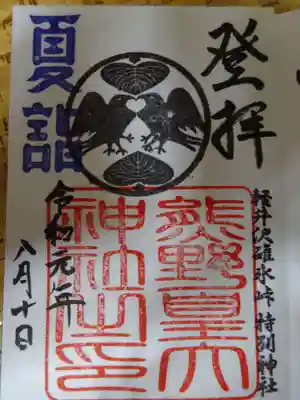 登拝
軽井沢碓氷峠 特別神社
熊野皇大
神社之印
夏詣
令和元年
八月十日